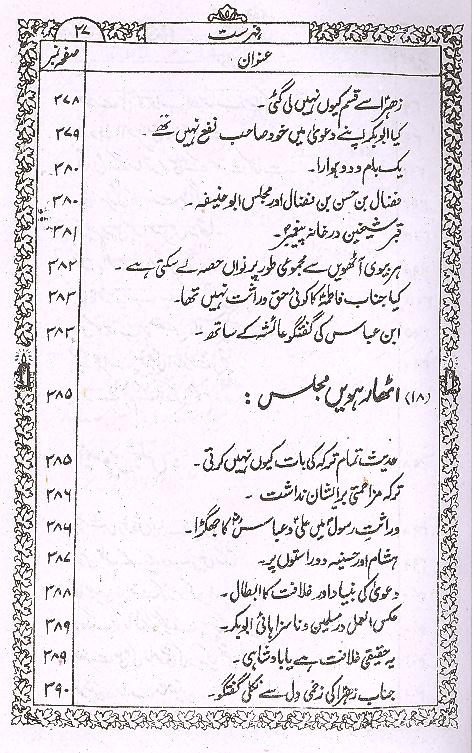 ۲۷ فہرست
صفحہ نمبر عنوان
زہرؑا سے قسم کیوں نہیں لی گئی۔ ۳۷۸
کیا ابوبکر اپنے دعویٰ میں خود صاحب نفع نہیں تھے ۳۷۹
یک بام و دو ہوا را۔ ۳۸۰
فضال بن حسن بن فضال اور مجلس ابو حنیفہ۔ ۳۸۰
قبر شیخین در خانۂ پیغمبرؐ۔ ۳۸۱
ہر بیوی آٹھویں سے مجموعی طور پر نواں حصہ لے سکتی ہے۔ ۳۸۲
کیا جناب فاطمہؑ کا کوئی حق وراثت نہیں تھا۔ ۳۸۳
ابن عباس کی گفتگو عائشہ کے ساتھ۔ ۳۸۳
(۱۸) اٹھارہویں مجلس : ۳۸۵
حدیث تمام ترکہ کی بات کیوں نہیں کرتی۔ ۳۸۵
ترکہ مزاحمتی برایشان نداشت ۔ ۳۸۶
وراثتِ رسولؐ میں علیؑ و عباسؓ کا جھگڑا۔ ۳۸۶
ہشام اور حسینہ دو راستوں پر۔ ۳۸۷
دعویٰ کی بنیاد اور خلافت کا ابطال۔ ۳۸۸
عکس العمل در مسلمین و ناسزا ہائی ابوبکر۔ ۳۸۹
یہ حقیقی خلافت ہے یا بادشاہی۔ ۳۸۹
جناب زہرؑا کی زخمی دل سے نکلی گفتگو۔ ۳۹۰